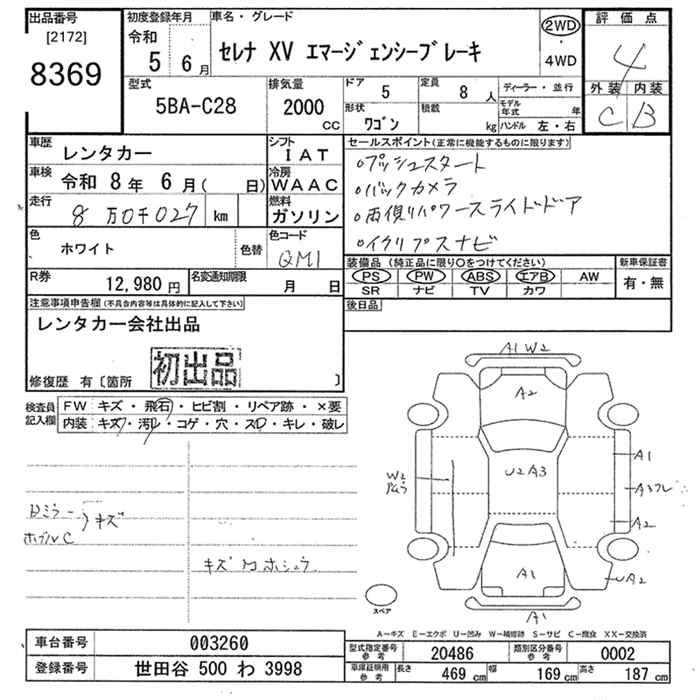 出品番号
[2172]
8369
初度登録年月
令和
5 6月
車名・グレード
セレナ XV エマージェンシーブレーキ
2WD
・
4WD
評価点
4
外装 内装
C B
型式
5BA-C28
排気量
2000
CC
ドア
5
定員
8人
形状
ワゴン
積載
kg
ディーラー・並行
モデル年式 年
ハンドル 左・右
車歴
レンタカー
シフト
IAT
車検
令和 8年 6月( 日)
冷房
WAAC
走行
8万0千027 km
燃料
ガソリン
色
ホワイト
色替
色コード
QM1
R券
12,980円
名変通知期限
月 日
セールスポイント(正常に機能するものに限ります)
○プッシュスタート
○バックカメラ
○両側パワースライドドア
○イクリプスナビ
装備品(純正品に限り○をつけてください)
PS PW ABS エアB AW
SR ナビ TV カワ
新車保証書
有・無
後日品
注意事項申告欄(不具合内容等は具体的に記入して下さい)
レンタカー会社出品
初出品
修復歴 有〔箇所 〕
検査員記入欄
FW キズ・飛石・ヒビ割・リペア跡・×要
内装 キズ・汚レ・コゲ・穴・スレ・キレ・破レ
A1 W2
A2
U2 A3
A1
A2
W2
A1
UA2
A1
Dミラー
キズ
スペア
A-キズ E-エクボ U-凹み W-補修跡 S-サビ C-腐食 XX-交換済
車台番号
003260
登録番号
世田谷 500 わ 3998
型式指定番号
参考
20486
類別区分番号
参考
0002
車庫証明用
参考
長さ
469 cm
幅
169 cm
高さ
187 cm